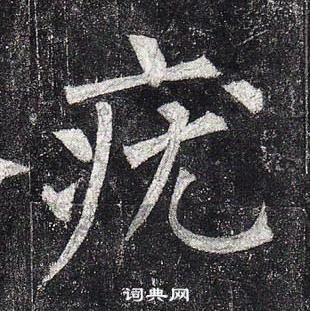 疣
词典网